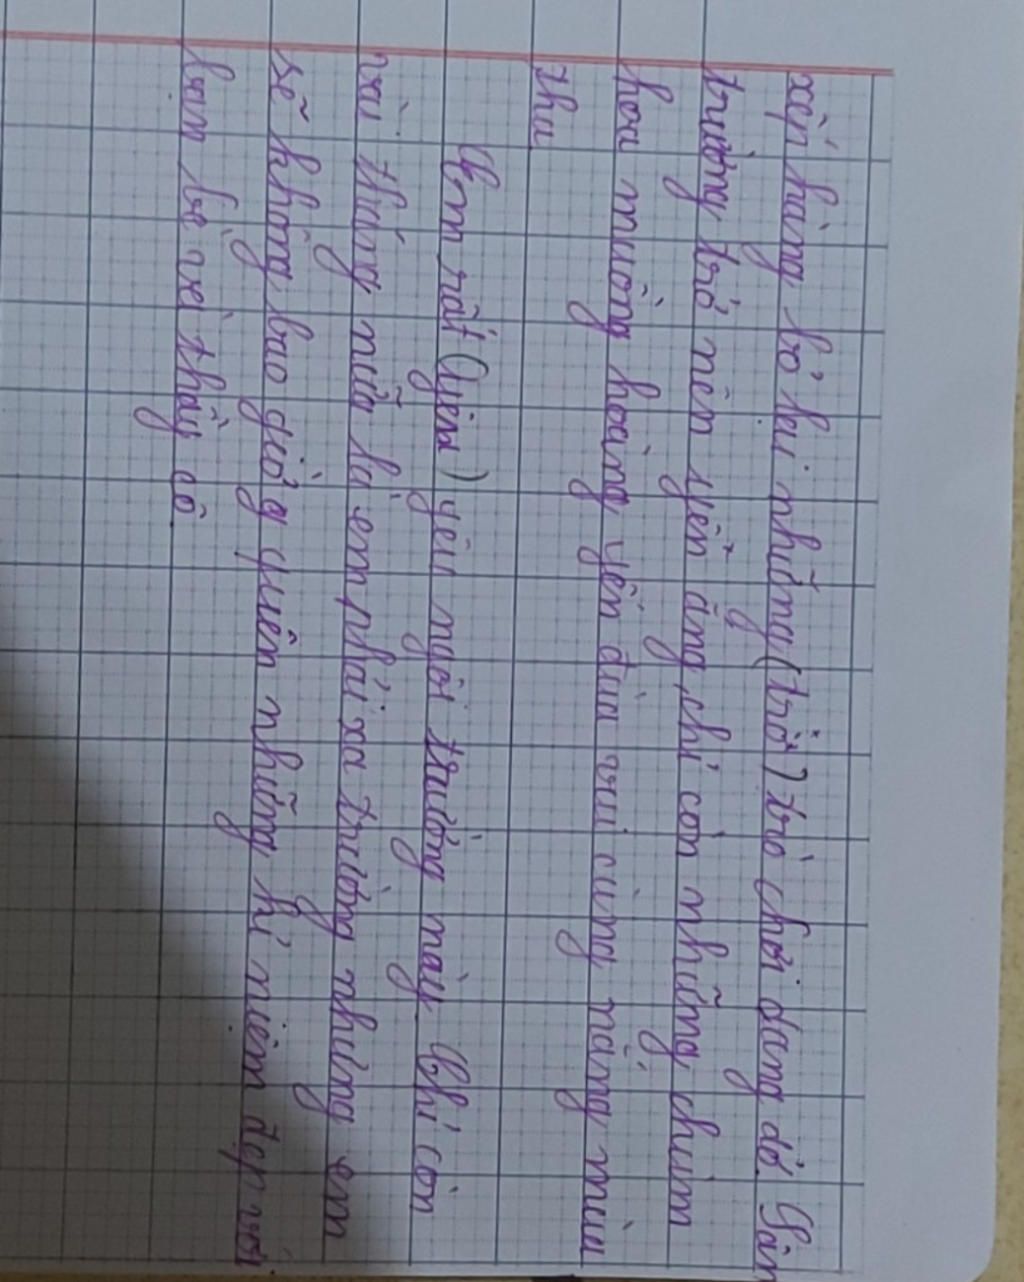 xếp hàng, bỏ lại những (trở) trò chơi dang dở. Sân
trường trở nên yên ắng, chỉ còn những chùm
hoa muồng hoàng yến đùa vui cùng nắng mùa
thu
Em rất (yêu) yêu ngôi trường này. Chỉ còn
vài tháng nữa là em phải xa trường nhưng em
sẽ không bao giờ quên những kỉ niệm đẹp với
bạn bè và thầy cô